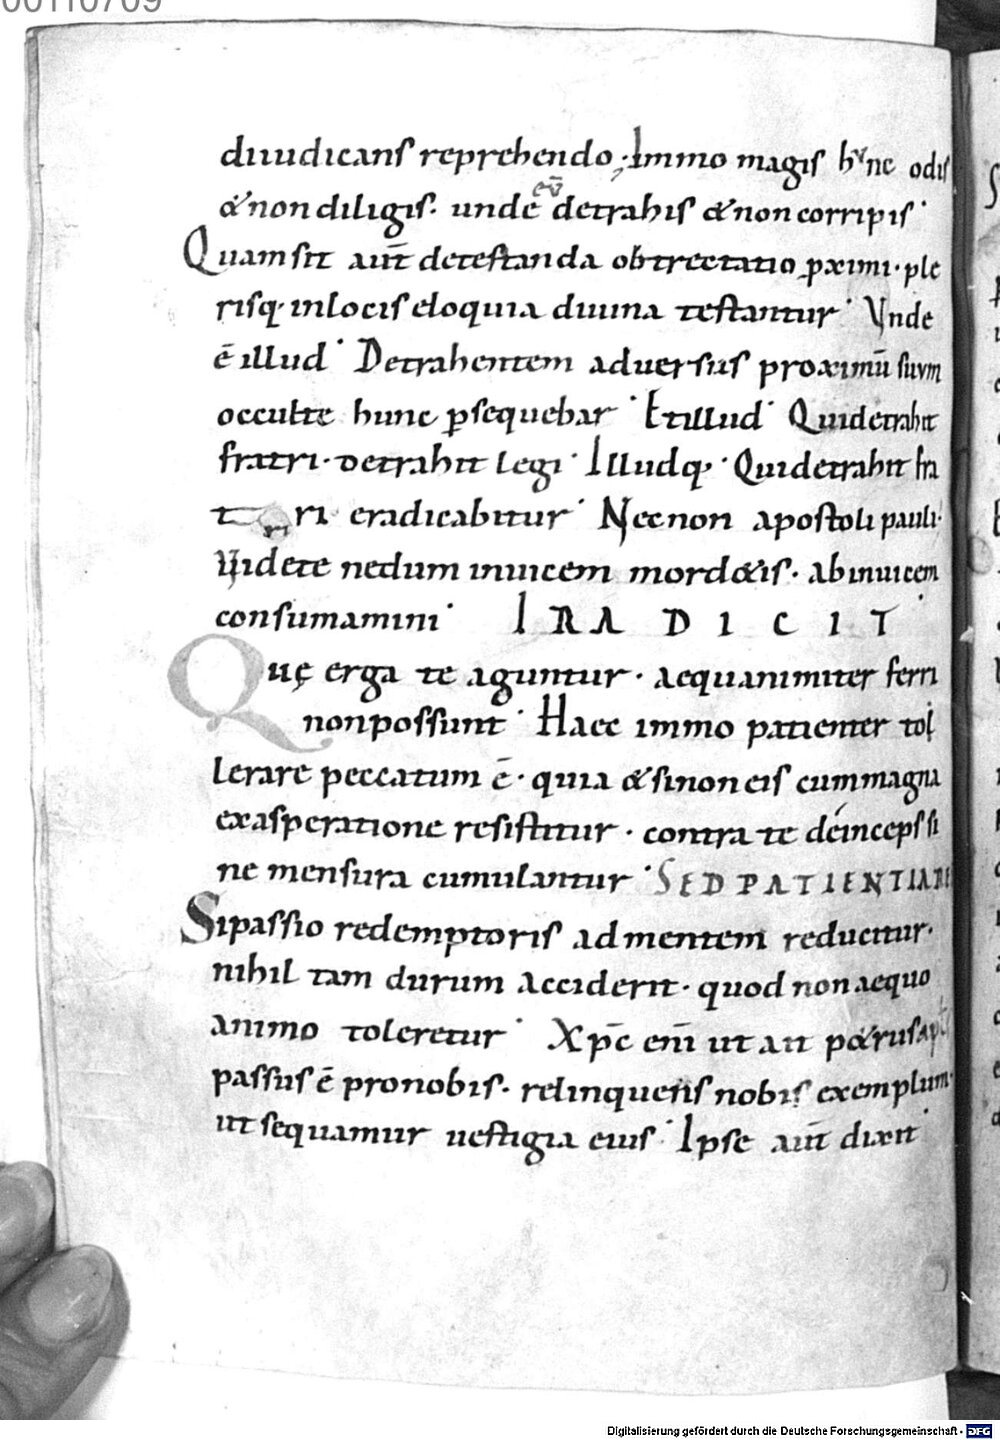 00110709
diiudicans reprehendo; Immo magis hunc odis
& non diligis. unde eū detrahis & non corripis.
Quam sit aut̄ detestanda obtrectatio ꝓximi. ple
risq. in locis eloquia diuina testantur. Vnde
ē illud. Detrahentem aduersus proximū suum
occulte hunc ꝑsequebar. Et illud. Qui detrahit
fratri. detrahit legi. Illudq. Qui detrahit fra
tri eradicabitur. Necnon apostoli pauli.
Videte ne dum inuicem mord&is. ab inuicem
consumamini. IRA DICIT
Quę erga te aguntur. aequanimiter ferri
non possunt. Haec immo patienter tol
lerare peccatum ē. quia & si non eis cum magna
exasperatione resistitur. contra te déinceps si
ne mensura cumulantur. SED PATIENTIA RE
Si passio redemptoris ad mentem reducitur.
nihil tam durum acciderit. quod non aequo
animo toleretur. Xp̄c eni̅ ut ait p&rus apl̄s
passus ē pro nobis. relinquens nobis exemplum.
ut sequamur uestigia eius. Ipse aut̄ dixit.
Digitalisierung gefördert durch die Deutsche Forschungsgemeinschaft - DFG